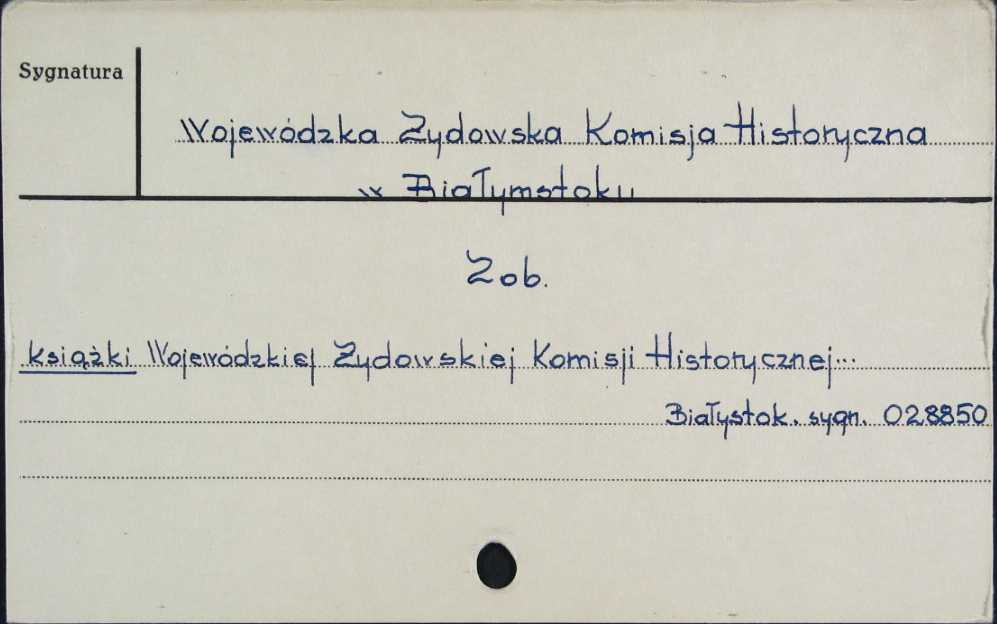 Sygnatura
Wojewódzka Żydowska Komisja Historyczna
w Białymstoku
Zob.
książki Wojewódzkiej Żydowskiej Komisji Historycznej...
Białystok. sygn. 028850